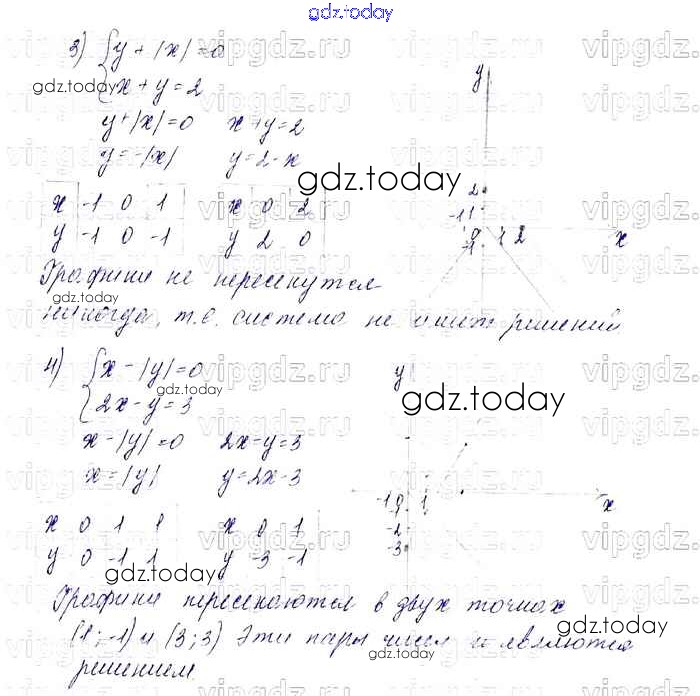 gdz.today
3) { y + |x| = 0
x + y = 2
gdz.today
y + |x| = 0 x + y = 2
y = -|x| y = 2 - x
gdz.today
x -1 0 1 x 0 2
y -1 0 -1 y 2 0
y
2
-1 1
0 1 2 x
-1
Графики не пересекутся
gdz.today
никогда, т.е. система не имеет решений
4) { x - |y| = 0
2x - y = 3
gdz.today
gdz.today
x - |y| = 0 2x - y = 3
x = |y| y = 2x - 3
y
-1 0 1 x
-1
-2
-3
x 0 1 1 x 0 1
y 0 -1 1 y -3 -1
gdz.today
gdz.today
Графики пересекаются в двух точках
(1; -1) и (3; 3) Эти пары чисел и являются
gdz.today
решением
vipgdz.ru